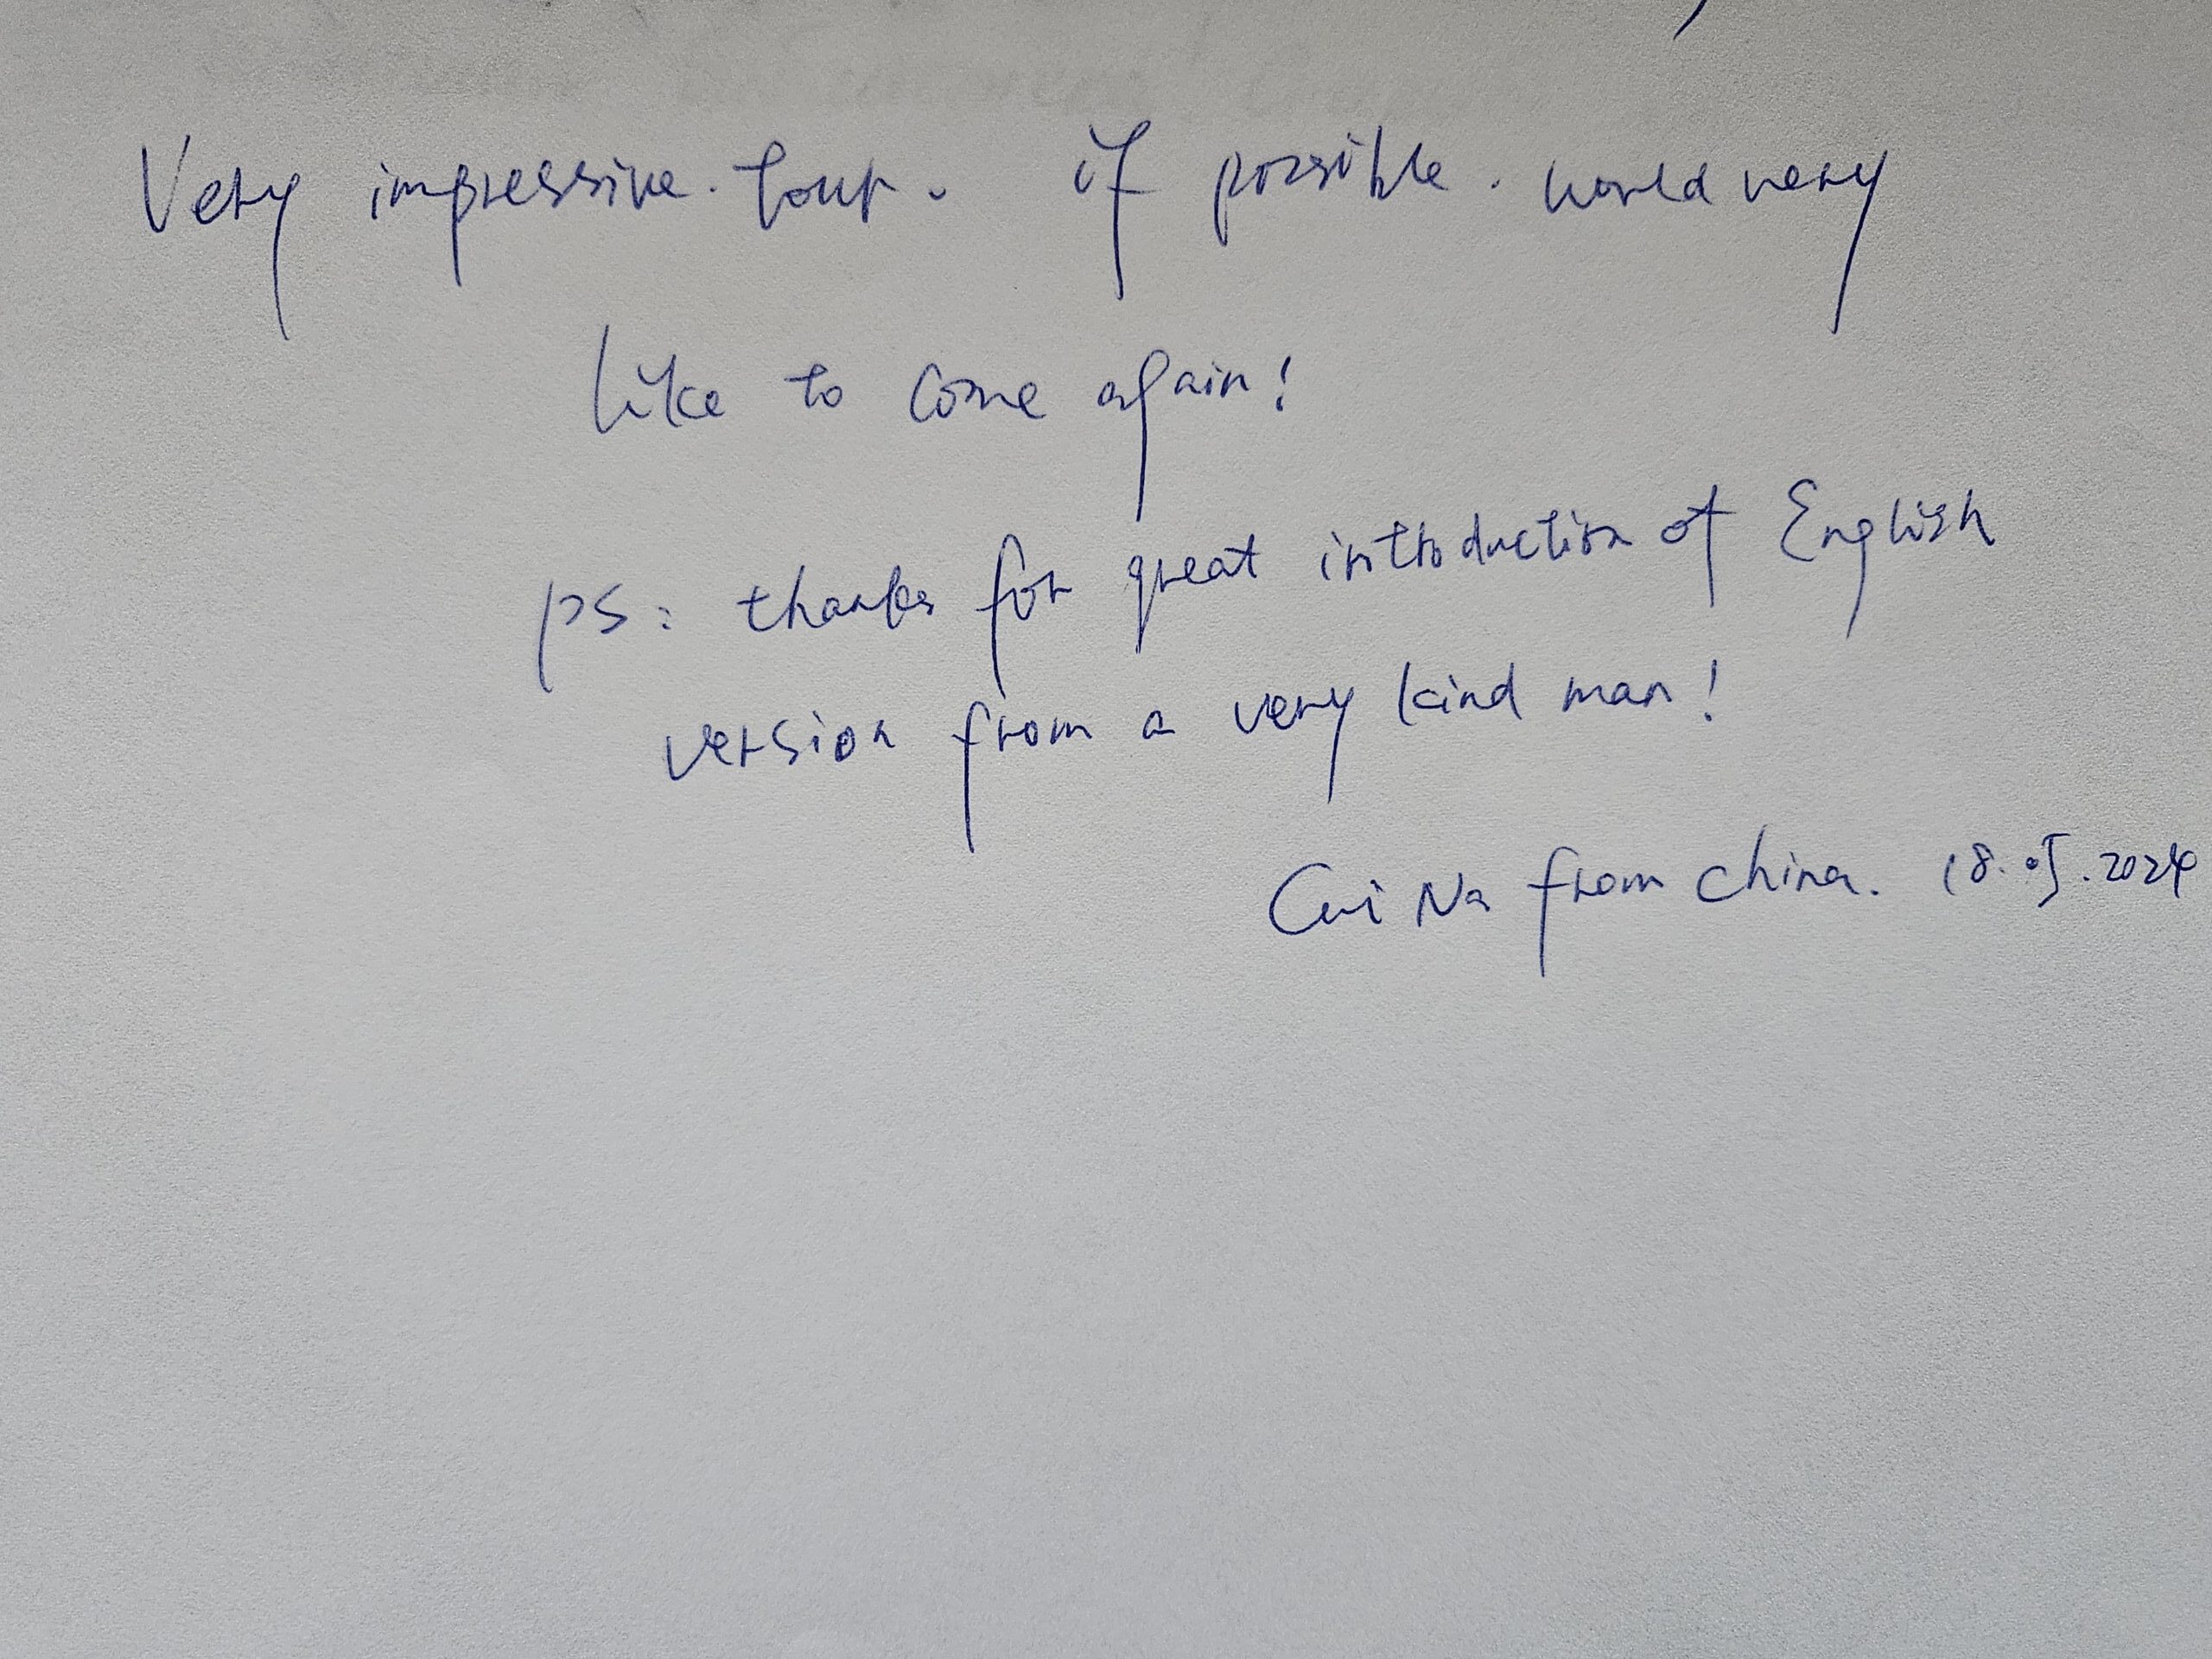 Very impressive. tour. if possible. would very
like to come again!
ps: thanks for great introduction of English
version from a very kind man!
Cui Na from china. 18.05.2024